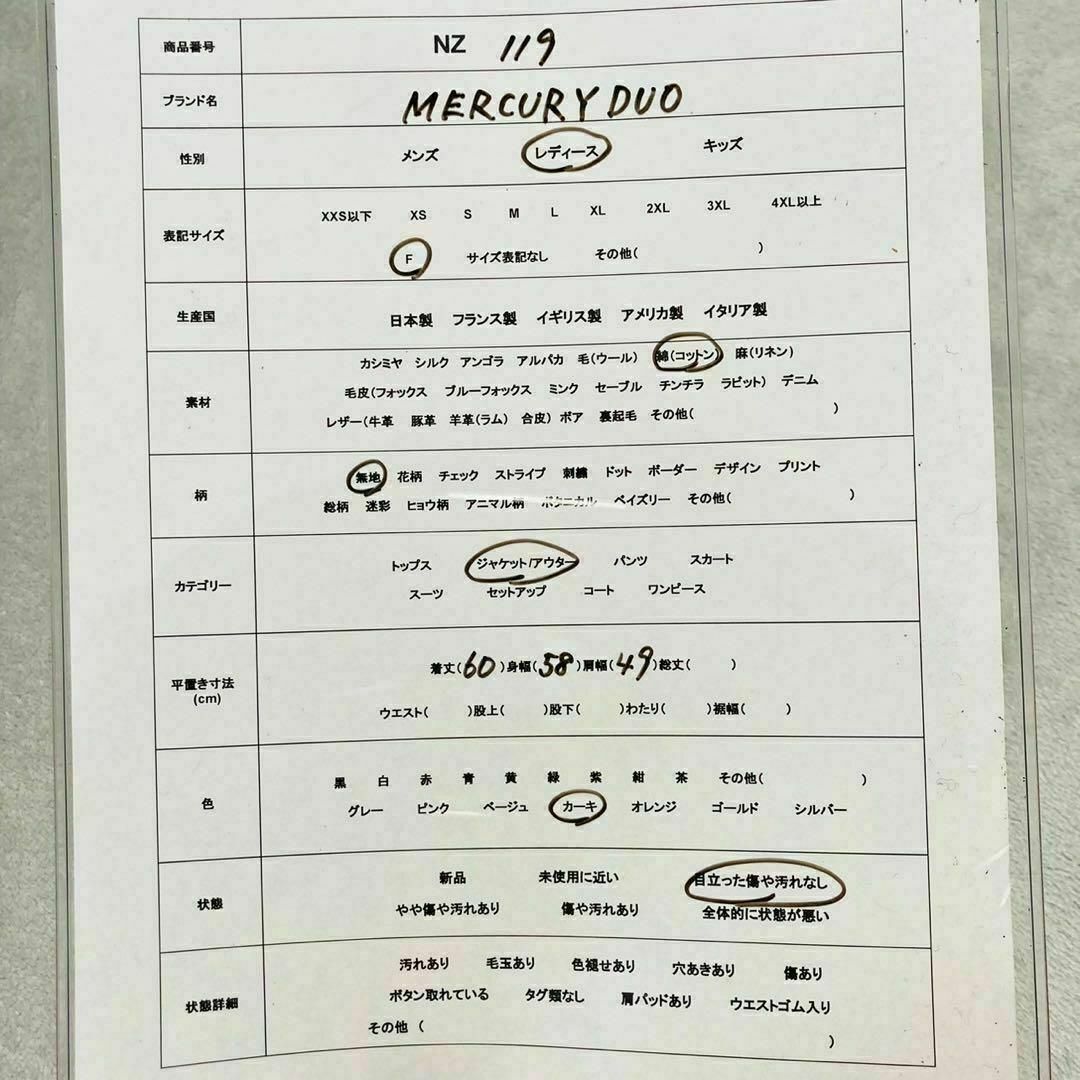 商品番号 NZ 119
ブランド名 MERCURY DUO
性別 メンズ レディース キッズ
XXS以下 XS S M L XL 2XL 3XL 4XL以上
表記サイズ
F サイズ表記なし その他( )
生産国 日本製 フランス製 イギリス製 アメリカ製 イタリア製
カシミヤ シルク アンゴラ アルパカ 毛(ウール) 綿(コットン) 麻(リネン)
毛皮(フォックス ブルーフォックス ミンク セーブル チンチラ ラビット) デニム
素材
レザー(牛革 豚革 羊革(ラム) 合皮) ボア 裏起毛 その他( )
無地 花柄 チェック ストライプ 刺繍 ドット ボーダー デザイン プリント
柄
総柄 迷彩 ヒョウ柄 アニマル柄 ボタニカル ペイズリー その他( )
トップス ジャケット/アウター パンツ スカート
カテゴリー
スーツ セットアップ コート ワンピース
着丈(60)身幅(58)肩幅(49)総丈( )
平置き寸法
(cm)
ウエスト( )股上( )股下( )わたり( )裾幅( )
黒 白 赤 青 黄 緑 紫 紺 茶 その他( )
色
グレー ピンク ベージュ カーキ オレンジ ゴールド シルバー
新品 未使用に近い 目立った傷や汚れなし
状態
やや傷や汚れあり 傷や汚れあり 全体的に状態が悪い
汚れあり 毛玉あり 色褪せあり 穴あきあり 傷あり
状態詳細
ボタン取れている タグ類なし 肩パッドあり ウエストゴム入り
その他 ( )